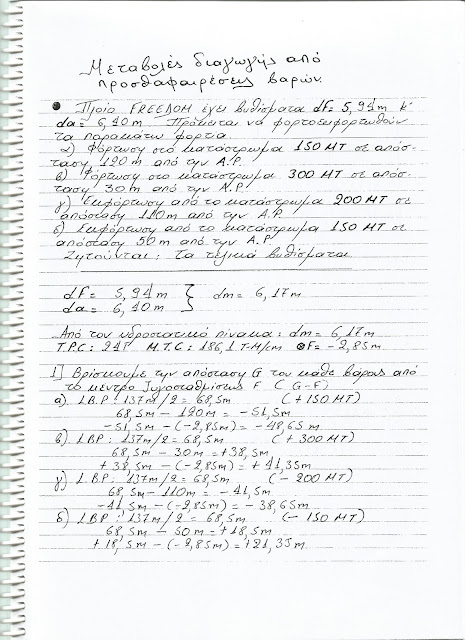 Μεταβολές διαγωγής από
προσθαφαιρέσεις βαρών.
● Πλοίο FREEDOM έχει βυθίσματα df = 5,94 m κ'
da = 6,40 m Πρόκειται να φορτοεκφορτωθούν
τα παρακάτω φορτία
α) Φόρτωση στο κατάστρωμα 150 MT σε απόσ-
ταση 120 m από την Α.Ρ.
β) Φόρτωση στο κατάστρωμα 300 MT σε απόσ-
ταση 30 m από την Α.Ρ.
γ) Εκφόρτωση από το κατάστρωμα 200 MT σε
απόσταση 110 m από την Α.Ρ.
δ) Εκφόρτωση από το κατάστρωμα 150 MT σε
απόσταση 50 m από την Α.Ρ
Ζητούνται: Τα τελικά βυθίσματα
df = 5,94 m } dm = 6,17 m
da = 6,40 m
Από τον υδροστατικό πίνακα: dm = 6,17 m
T.P.C: 24T M.T.C: 186,1 T-M/cm ⊗F = -2,85 m
1] Βρίσκουμε την απόσταση G του κάθε βάρους από
το κέντρο ζυγοσταθμίσεως F (G-F)
α) L.B.P: 137m/2 = 68,5m (+150 MT)
68,5m - 120m = -51,5m
-51,5m - (-2,85m) = -48,65 m
β) LBP: 137m/2 = 68,5m (+300 MT)
68,5m - 30m = +38,5m
+38,5m - (-2,85m) = +41,35m
γ) LBP: 137m/2 = 68,5m (-200 MT)
68,5m - 110m = -41,5m
-41,5m - (-2,85m) = -38,65m
δ) LBP: 137m/2 = 68,5m (-150 MT)
68,5m - 50m = +18,5m
+18,5m - (-2,85m) = +21,35m